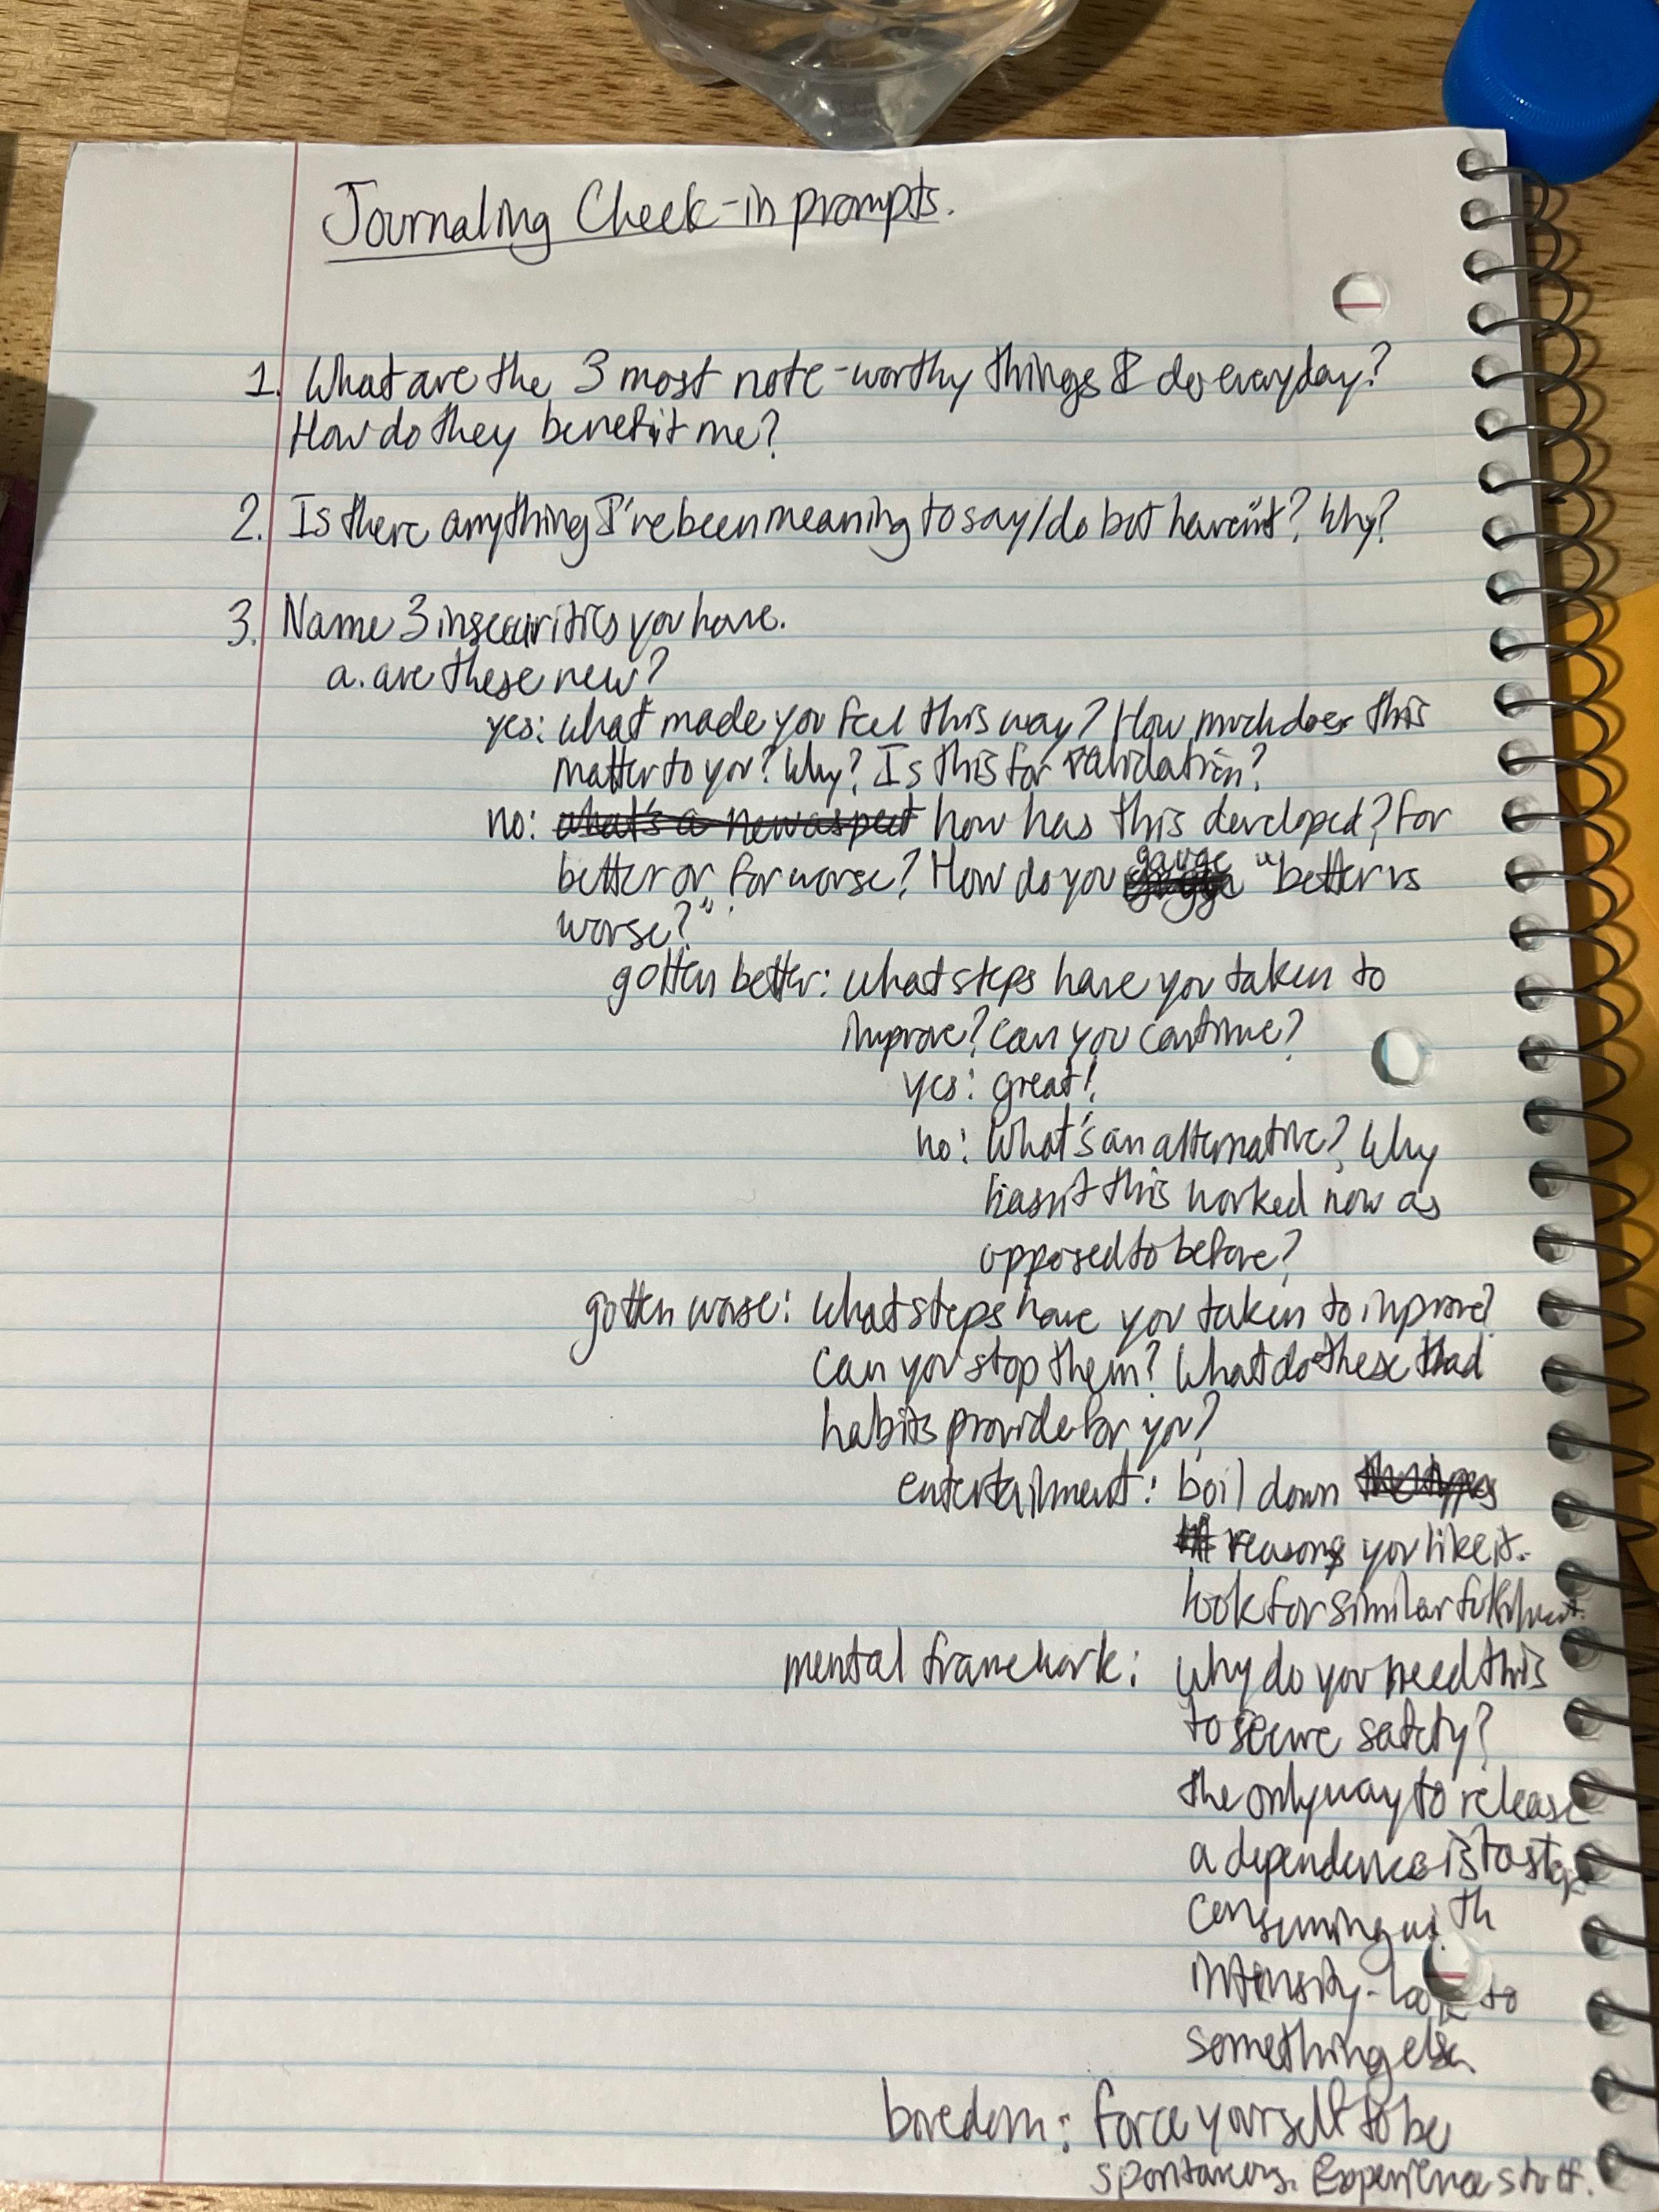 Journaling Check-in prompts.
1. What are the 3 most note-worthy things I do everyday?
How do they benefit me?
2. Is there anything I've been meaning to say/do but haven't? Why?
3. Name 3 insecurities you have.
a. are these new?
yes: what made you feel this way? How much does this
matter to you? Why? Is this for validation?
no: what's a new aspect how has this developed? for
better or for worse? How do you gauge "better vs
worse?"
gotten better: what steps have you taken to
improve? Can you continue?
yes: great!
no: What's an alternative? Why
hasn't this worked now as
opposed to before?
gotten worse: what steps have you taken to improve?
Can you stop them? What do these bad
habits provide for you?
entertainment: boil down the types
reasons you like it.
look for similar fulfilment.
mental framework: Why do you need this
to secure safety?
the only way to release
a dependence is to stop
consuming with
intensity - look to
something else.
boredom: force yourself to be
spontaneous. Experience stuff.